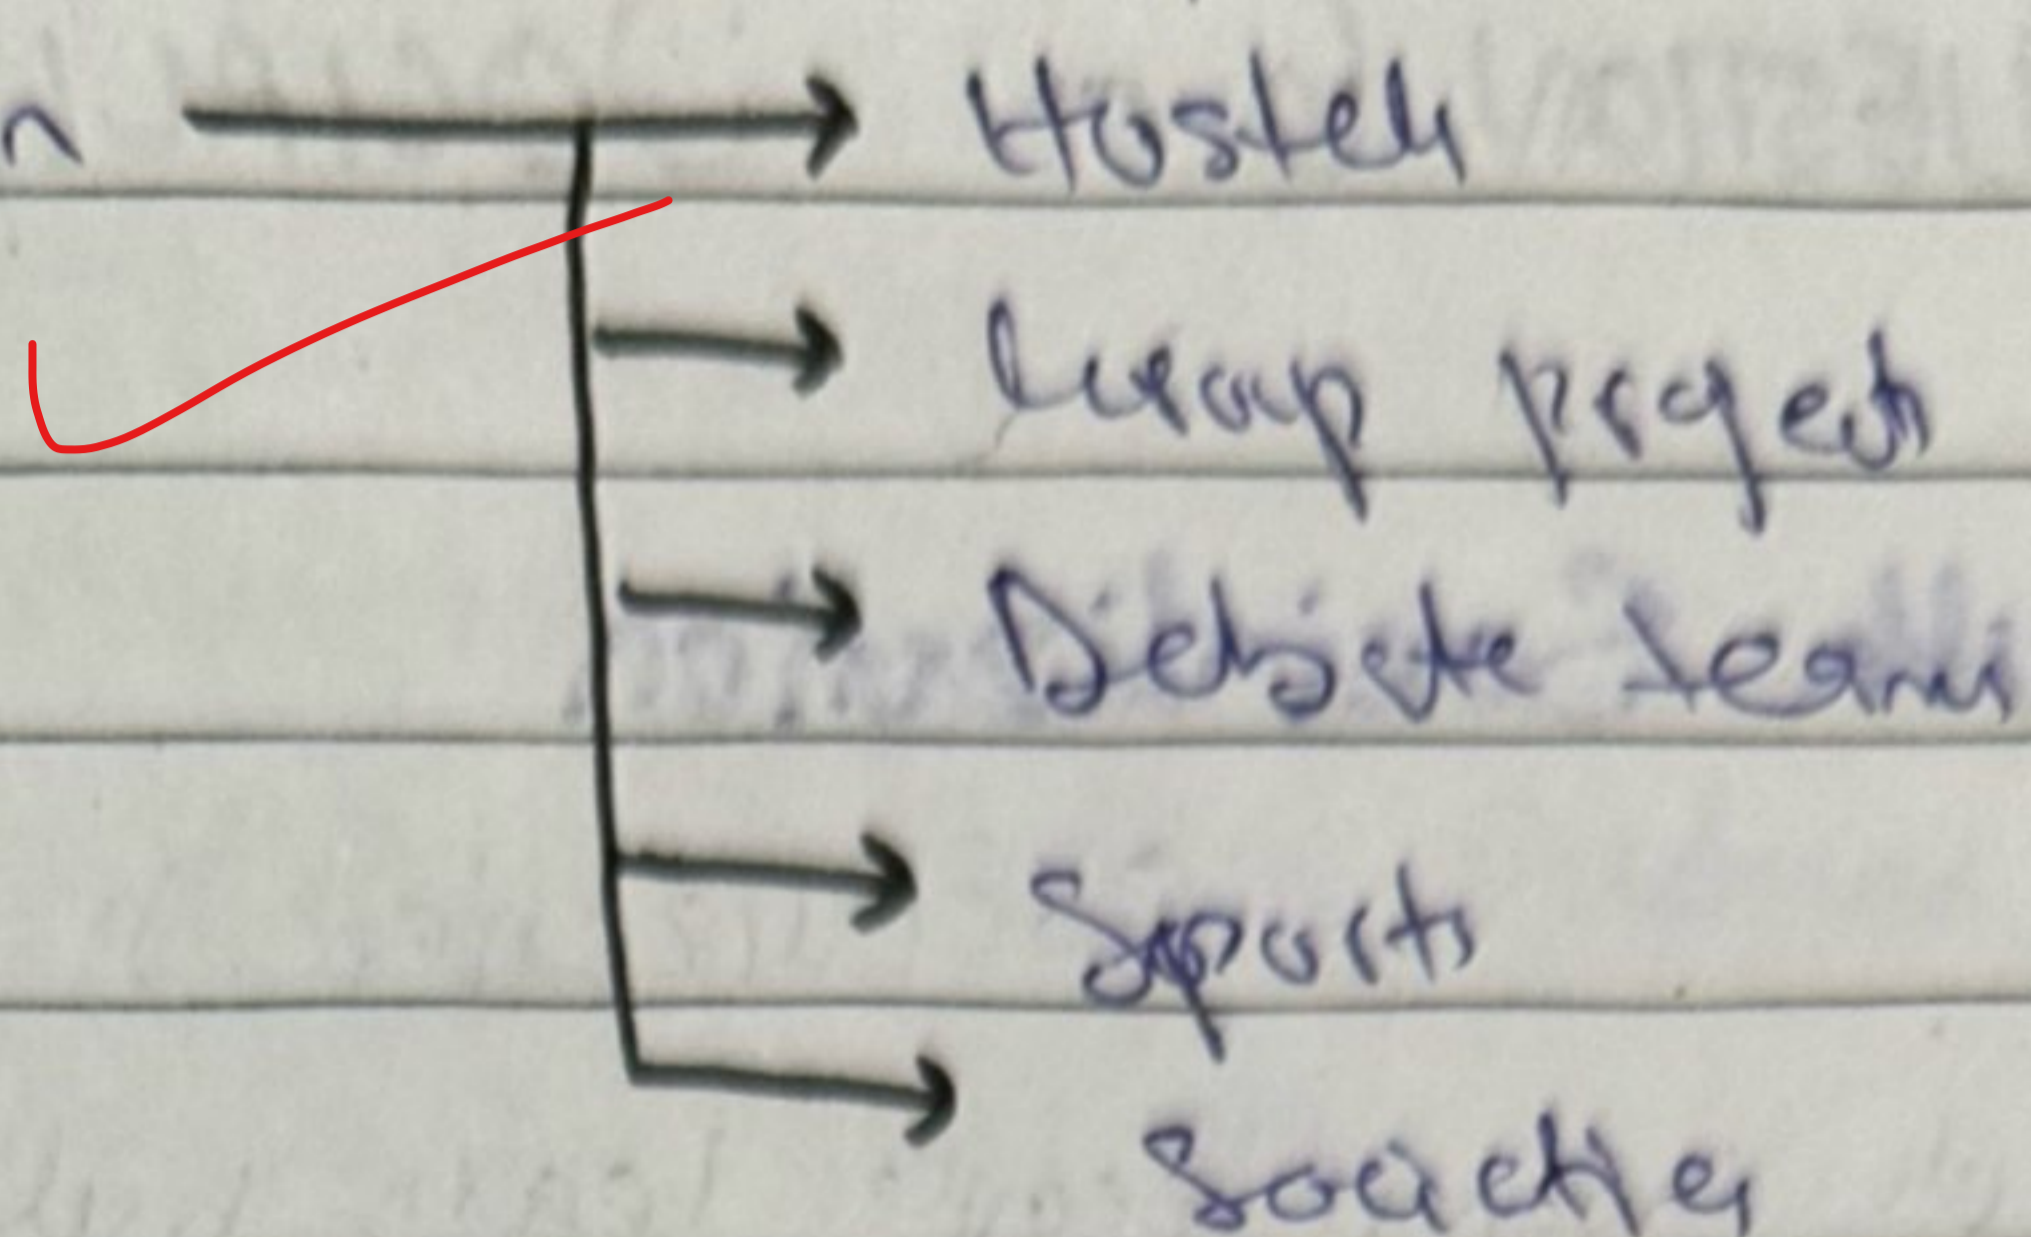 n → Hostels
→ Group projects
→ Debate teams
→ Sports
→ Societies